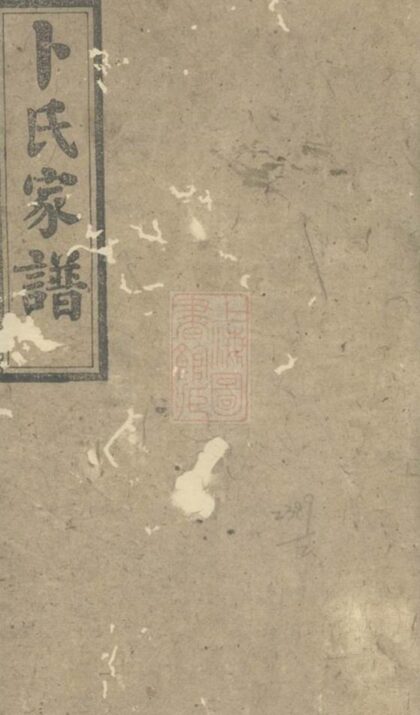 卜氏家譜
上海圖
書館藏
2389